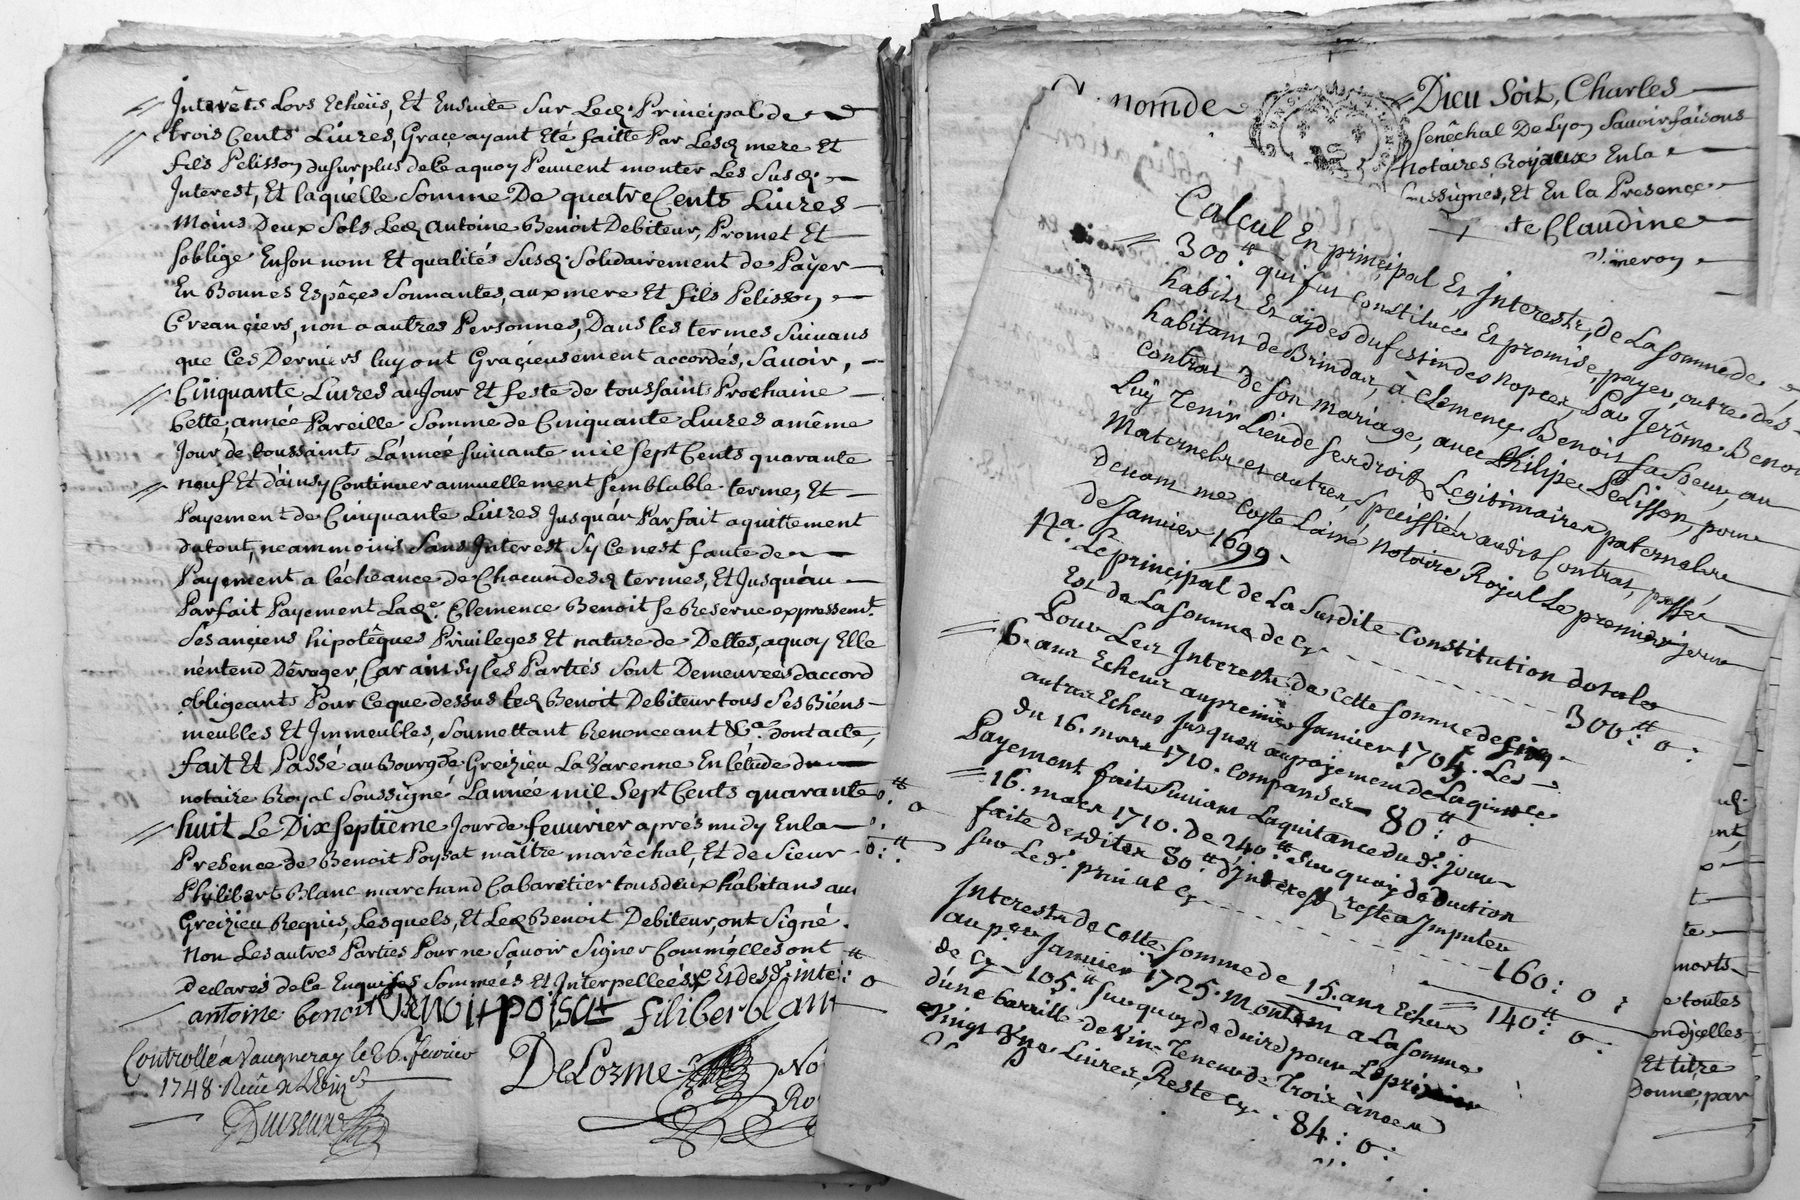 Interêts Lors Echeüs, Et Ensuite Sur Led. Principal de
trois Cents Livres, Grace ayant Eté faitte Par Lesd. mere Et
fils Pelisson du surplus de ce aquoy Peuvent monter Les Susd.
Interest, Et laquelle Somme De quatre Cents Livres
moins Deux Sols Led. Antoine Benoit Debiteur, Promet Et
soblige En son nom Et qualités Susd. Solidairement de Payer
En Bonnes Espêces Sonnantes, aux mere Et fils Pelisson
Creanciers, non a autres Personnes, Dans les termes Suivans
que Ces Derniers luy ont Gracieusement accordés, Savoir,
Cinquante Livres au Jour Et feste de toussaint Prochaine
Cette, année Pareille Somme de Cinquante Livres a même
Jour de toussaint L'année suivante mil sept Cents quarante
neuf Et d'ainsy Continuer annuellement semblable termes Et
Payement de Cinquante Livres Jusqu'au Parfait aquittement
du tout, neammoins Sans Interest Sy Ce nest faute de
Payement a l'écheance de Chacun desd. termes, Et Jusqu'au
Parfait Payement Lade. Clemence Benoit se Reserve expressemt.
Ses anciens hipotêques Privileges Et nature de Dettes, aquoy Elle
n'entend Déroger, Car ainsy les Parties Sont Demeureés d'accord
obligeants Pour Ce que dessus Led. Benoit Debiteur tous Ses Biens
meubles Et Immeubles, Soumettant Renonceant &ca. Dont acte,
fait Et Passé au Bourg de Greizieu La Varenne En l'étude du
notaire Royal Soussigné L'année mil Sept Cents quarante
huit Le Dix septieme Jour de fevurier aprés midy En la
Presence de Benoit Poyzat maître marêchal, Et de Sieur
Philibert Blanc marchand Cabaretier tous deux habitans au
Greizieu Requis, Lesquels, Et Led. Benoit Debiteur, ont Signé
Non Les autres Parties Pour ne Savoir Signer Comm'elles ont
Declarés de ce Enquises Sommées Et Interpelleés
antoine benoit Benoit poisat filiber blan
Controllé a Vaugneray le 26. fevrier
1748
DeLorme No
Ro
nom de Dieu Soit, Charles
Senêchal De Lyon Savoir faisons
Notaires Royaux En la
sussignés, Et En la Presence
Claudine
Calcul En principal Et Interestz, De La Somme de
300.tt qui fut Constituee Et promise, payer, outre des
habits Et aydes du festin des nopces, Par Jerôme Benoit
habitant de Brindas, à Clemence Benoit sa Soeur, au
Contrat de Son mariage, avec Philipe Pelisson, pour
Luy Tenir Lieu de Ses droits Legitimaires paternels
Maternels et autres, Speciffiés audit Contrat, passé
devant me Coste Lainé notaire Royal Le premier jour
de Janvier 1699.
Na. Le principal de La Susdite Constitution dotale
Est de La Somme de Cy - - - - - 300tt: 0:
Pour Les Interests de Cette Somme de Cinq
6. ans Echeus au premier Janvier 1705. Les
autres Echeus Jusques au payement de La quince.
du 16. mars 1710. Compensés 80:tt 0
Payement fait Suivant La quitance du d. jour
16. mars 1710. de 240.tt Sur quoy déduction
faite desdites 80.tt d'Interest, reste a Imputer
Sur Le d. prinal Cy - - - - - 160: 0:
140:tt 0:
Interests de Cette Somme de 15. ans Echeus
au per. Janvier 1725. montent a La Somme
de Cy - 105.tt Sur quoy deduire pour Le prix
d'une barrille de Vin Teneur de Trois ânées
Vingt Une Livres, Reste Cy - 84: 0:
morts
toutes
ondicelles
Et titre
Donné, par